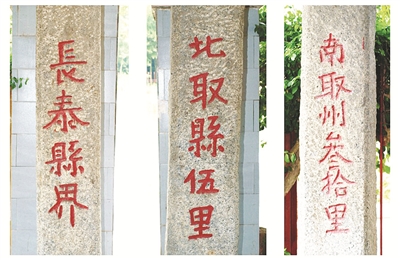 長泰縣界
北取縣伍里
南取州叁拾里